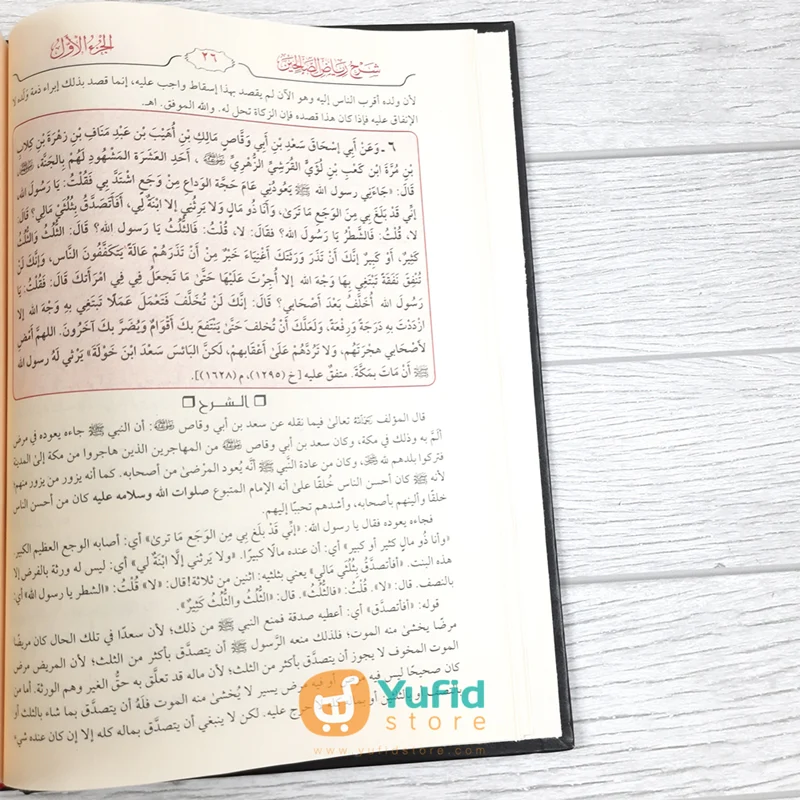 شرح رياض الصالحين
٢٦
الجزء الأول
لأن ولده أقرب الناس إليه وهو الآن لم يقصد بهذا إسقاط واجب عليه، إنما قصد بذلك إبراء ذمة ولده لا
الإنفاق عليه فإذا كان هذا قصده فإن الزكاة تحل له. والله الموفق. اهـ.
٦ - وَعَنْ أَبِي إِسْحَاقَ سَعْدِ بْنِ أَبِي وَقَّاصٍ مَالِكِ بْنِ أُهَيْبَ بْنِ عَبْدِ مَنَافِ بْنِ زُهْرَةَ بْنِ كِلابِ
بْنِ مُرَّةَ ابْنِ كَعْبِ بْنِ لُؤَيٍّ القُرَشِيِّ الزُّهْرِيِّ رضي الله عنه، أَحَدِ العَشَرَةِ المَشْهُودِ لَهُمْ بِالجَنَّةِ، رضي الله عنهم،
قَالَ: «جَاءَنِي رسول الله ﷺ يَعُودُنِي عَامَ حَجَّةِ الوَدَاعِ مِنْ وَجَعٍ اشْتَدَّ بِي فَقُلْتُ: يَا رَسُولَ الله،
إِنِّي قَدْ بَلَغَ بِي مِنَ الوَجَعِ مَا تَرَىٰ، وَأَنَا ذُو مَالٍ وَلا يَرِثُنِي إلا ابْنَةٌ لِي، أَفَأَتَصَدَّقُ بِثُلُثَيْ مَالِي؟ قَالَ:
لا، قُلْتُ: فَالشَّطْرُ يَا رَسُولَ الله؟ فقَالَ: لا، قُلْتُ: فَالثُّلُثُ يَا رسول الله؟ قَالَ: الثُّلُثُ وَالثُّلُثُ
كَثِيْرٌ، أَوْ كَبِيرٌ إِنَّكَ أَنْ تَذَرَ وَرَثَتَكَ أَغْنِيَاءَ خَيْرٌ مِنْ أَنْ تَذَرَهُمْ عَالَةً يَتَكَفَّفُونَ النَّاس، وَإِنَّكَ لَنْ
تُنْفِقَ نَفَقَةً تَبْتَغِي بِهَا وَجْهَ الله إلا أُجِرْتَ عَلَيْهَا حَتَّىٰ مَا تَجعَلُ فِي فِي امْرَأَتِكَ قَالَ: فَقُلْتُ: يَا
رَسُولَ الله أُخَلَّفُ بَعْدَ أَصْحَابِي؟ قَالَ: إِنَّكَ لَنْ تُخَلَّفَ فَتَعْمَلَ عَمَلًا تَبْتَغِي بِهِ وَجْهَ الله إلا
ازْدَدْتَ بِهِ دَرَجَةً وَرِفْعَةً، وَلَعَلَّكَ أَنْ تُخلفَ حَتَّىٰ يَنْتَفِعَ بِكَ أَقْوَامٌ وَيُضَرَّ بِكَ آخَرُونَ. اللهمَّ أَمْضِ
لأَصْحَابِي هِجْرَتَهُم، وَلا تَرُدَّهُمْ عَلَىٰ أَعْقَابِهِمْ، لَكنَّ البَائسَ سَعْدَ ابْنَ خَوْلَةَ» يَرْثِي لَهُ رسول الله
ﷺ أَنْ مَاتَ بِمَكَّةَ. متفقٌ عليه [خ (١٢٩٥)، م (١٦٢٨)].
الشرح
قال المؤلف رحمه الله تعالىٰ فيما نقله عن سعد بن أبي وقاص رضي الله عنه: أن النبي ﷺ جاءه يعوده في مرض
ألمَّ به وذلك في مكة، وكان سعد بن أبي وقاص رضي الله عنه من المهاجرين الذين هاجروا من مكة إلىٰ المدينة
فتركوا بلدهم لله، وكان من عادة النَّبي ﷺ أنَّه يُعود المرْضىٰ من أصحابه. كما أنه يزور من يزور منهم؛
لأنه ﷺ كان أحسن الناس خُلقًا علىٰ أنه الإمام المتبوع صلوات الله وسلامه عليه كان من أحسن الناس
خلقًا وألينهم بأصحابه، وأشدهم تحببًا إليهم.
فجاءه يعوده فقال يا رسول الله: «إنِّي قَدْ بَلَغَ بِي مِنَ الوَجَعِ مَا تَرىٰ» أي: أصابه الوجع العظيم الكبير.
«وأنَا ذُو مالٍ كثير أو كبير» أي: أن عنده مالًا كبيرًا. «ولا يَرثني إلَّا ابْنَةٌ لي» أي: ليس له ورثة بالفرض إلا
هذه البنت. «أفأتصدَّق بِثُلُثَي مَالي» يعني بثلثيه: اثنين من ثلاثة! قال: «لا» قُلْتُ: «الشطر يا رسول الله» أي:
بالنصف. قال: «لا». قُلْتُ: «فالثُّلث». قال: «الثُّلُث والثُّلُث كَثِيرٌ».
قوله: «أفأتصدَّق» أي: أعطيه صدقة فمنع النبي ﷺ من ذلك؛ لأن سعدًا في تلك الحال كان مريضًا
مرضًا يخشىٰ منه الموت؛ فلذلك منعه الرَّسول ﷺ أن يتصدَّق بأكثر من الثلث؛ لأن المريض مرض
الموت المخوف لا يجوز أن يتصدَّق بأكثر من الثلث؛ لأن ماله قد تعلَّق به حقُّ الغير وهم الورثة. أما من
كان صحيحًا ليس فيه مرض أو فيه مرض يسير لا يُخشىٰ منه الموت فلَهُ أن يتصدَّق بما شاء بالثلث أو
بالنصف أو بالثلثين أو بماله كله لا حرج عليه. لكن لا ينبغي أن يتصدَّق بماله كله إلا إن كان عنده شيء
Yufid
store
www.yufidstore.com